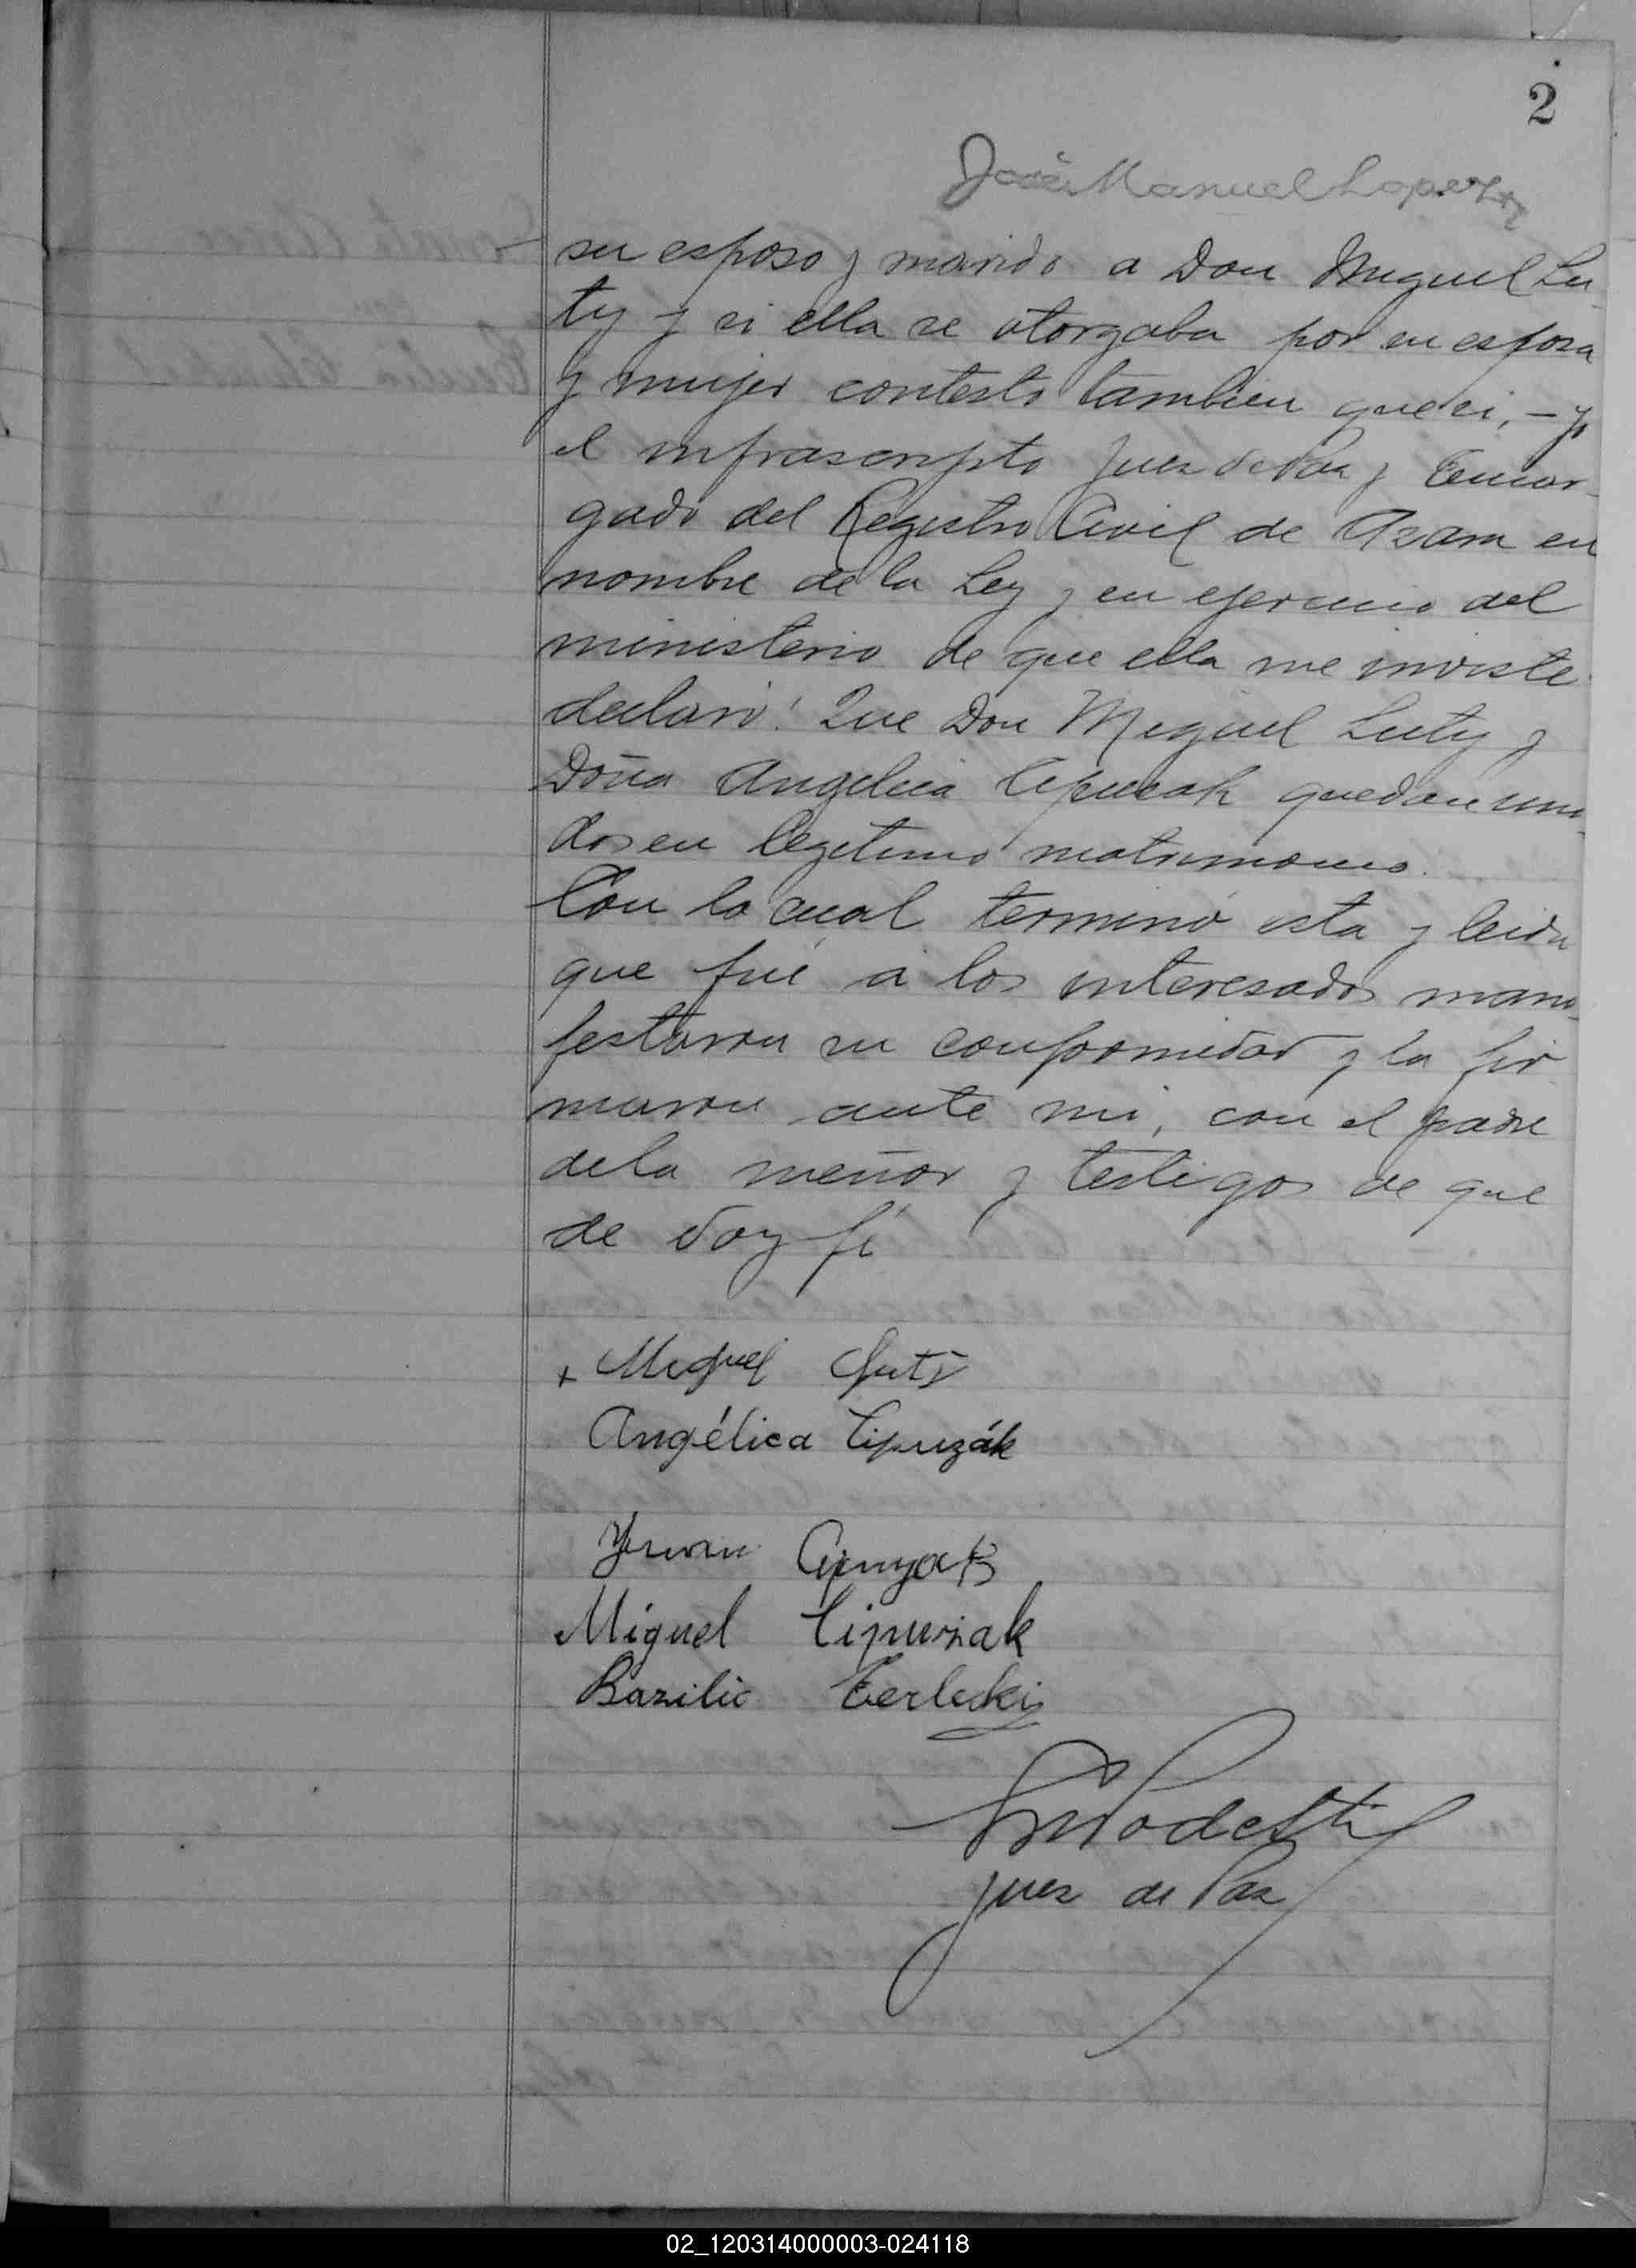 2
José Manuel Lopez
su esposo y marido a Don Miguel Lu-
ty y si ella se otorgaba por su esposa
y mujer contestó tambien que si, - yo
el infrascripto Juez de Paz y Encar-
gado del Registro Civil de Azara en
nombre de la Ley y en ejercicio del
ministerio de que ella me inviste
declaro: Que Don Miguel Luty y
Doña Angelica Cipuzak quedan uni-
dos en legitimo matrimonio.
Con lo cual terminó esta y leida
que fué á los interesados mani-
festaron su conformidad y la fir-
maron ante mi, con el padre
de la menor y testigos de que
de doy fé
+ Miguel Luty
Angélica Cipuzák
Miguel Cipuzak
Bazilio Terlecki
Podesti
Juez de Paz
02_120314000003-024118